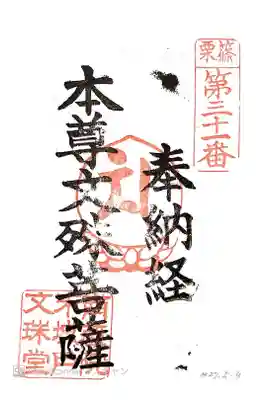 篠栗
第三十一番
奉納経
本尊文殊菩薩
文珠堂
H27.5.9